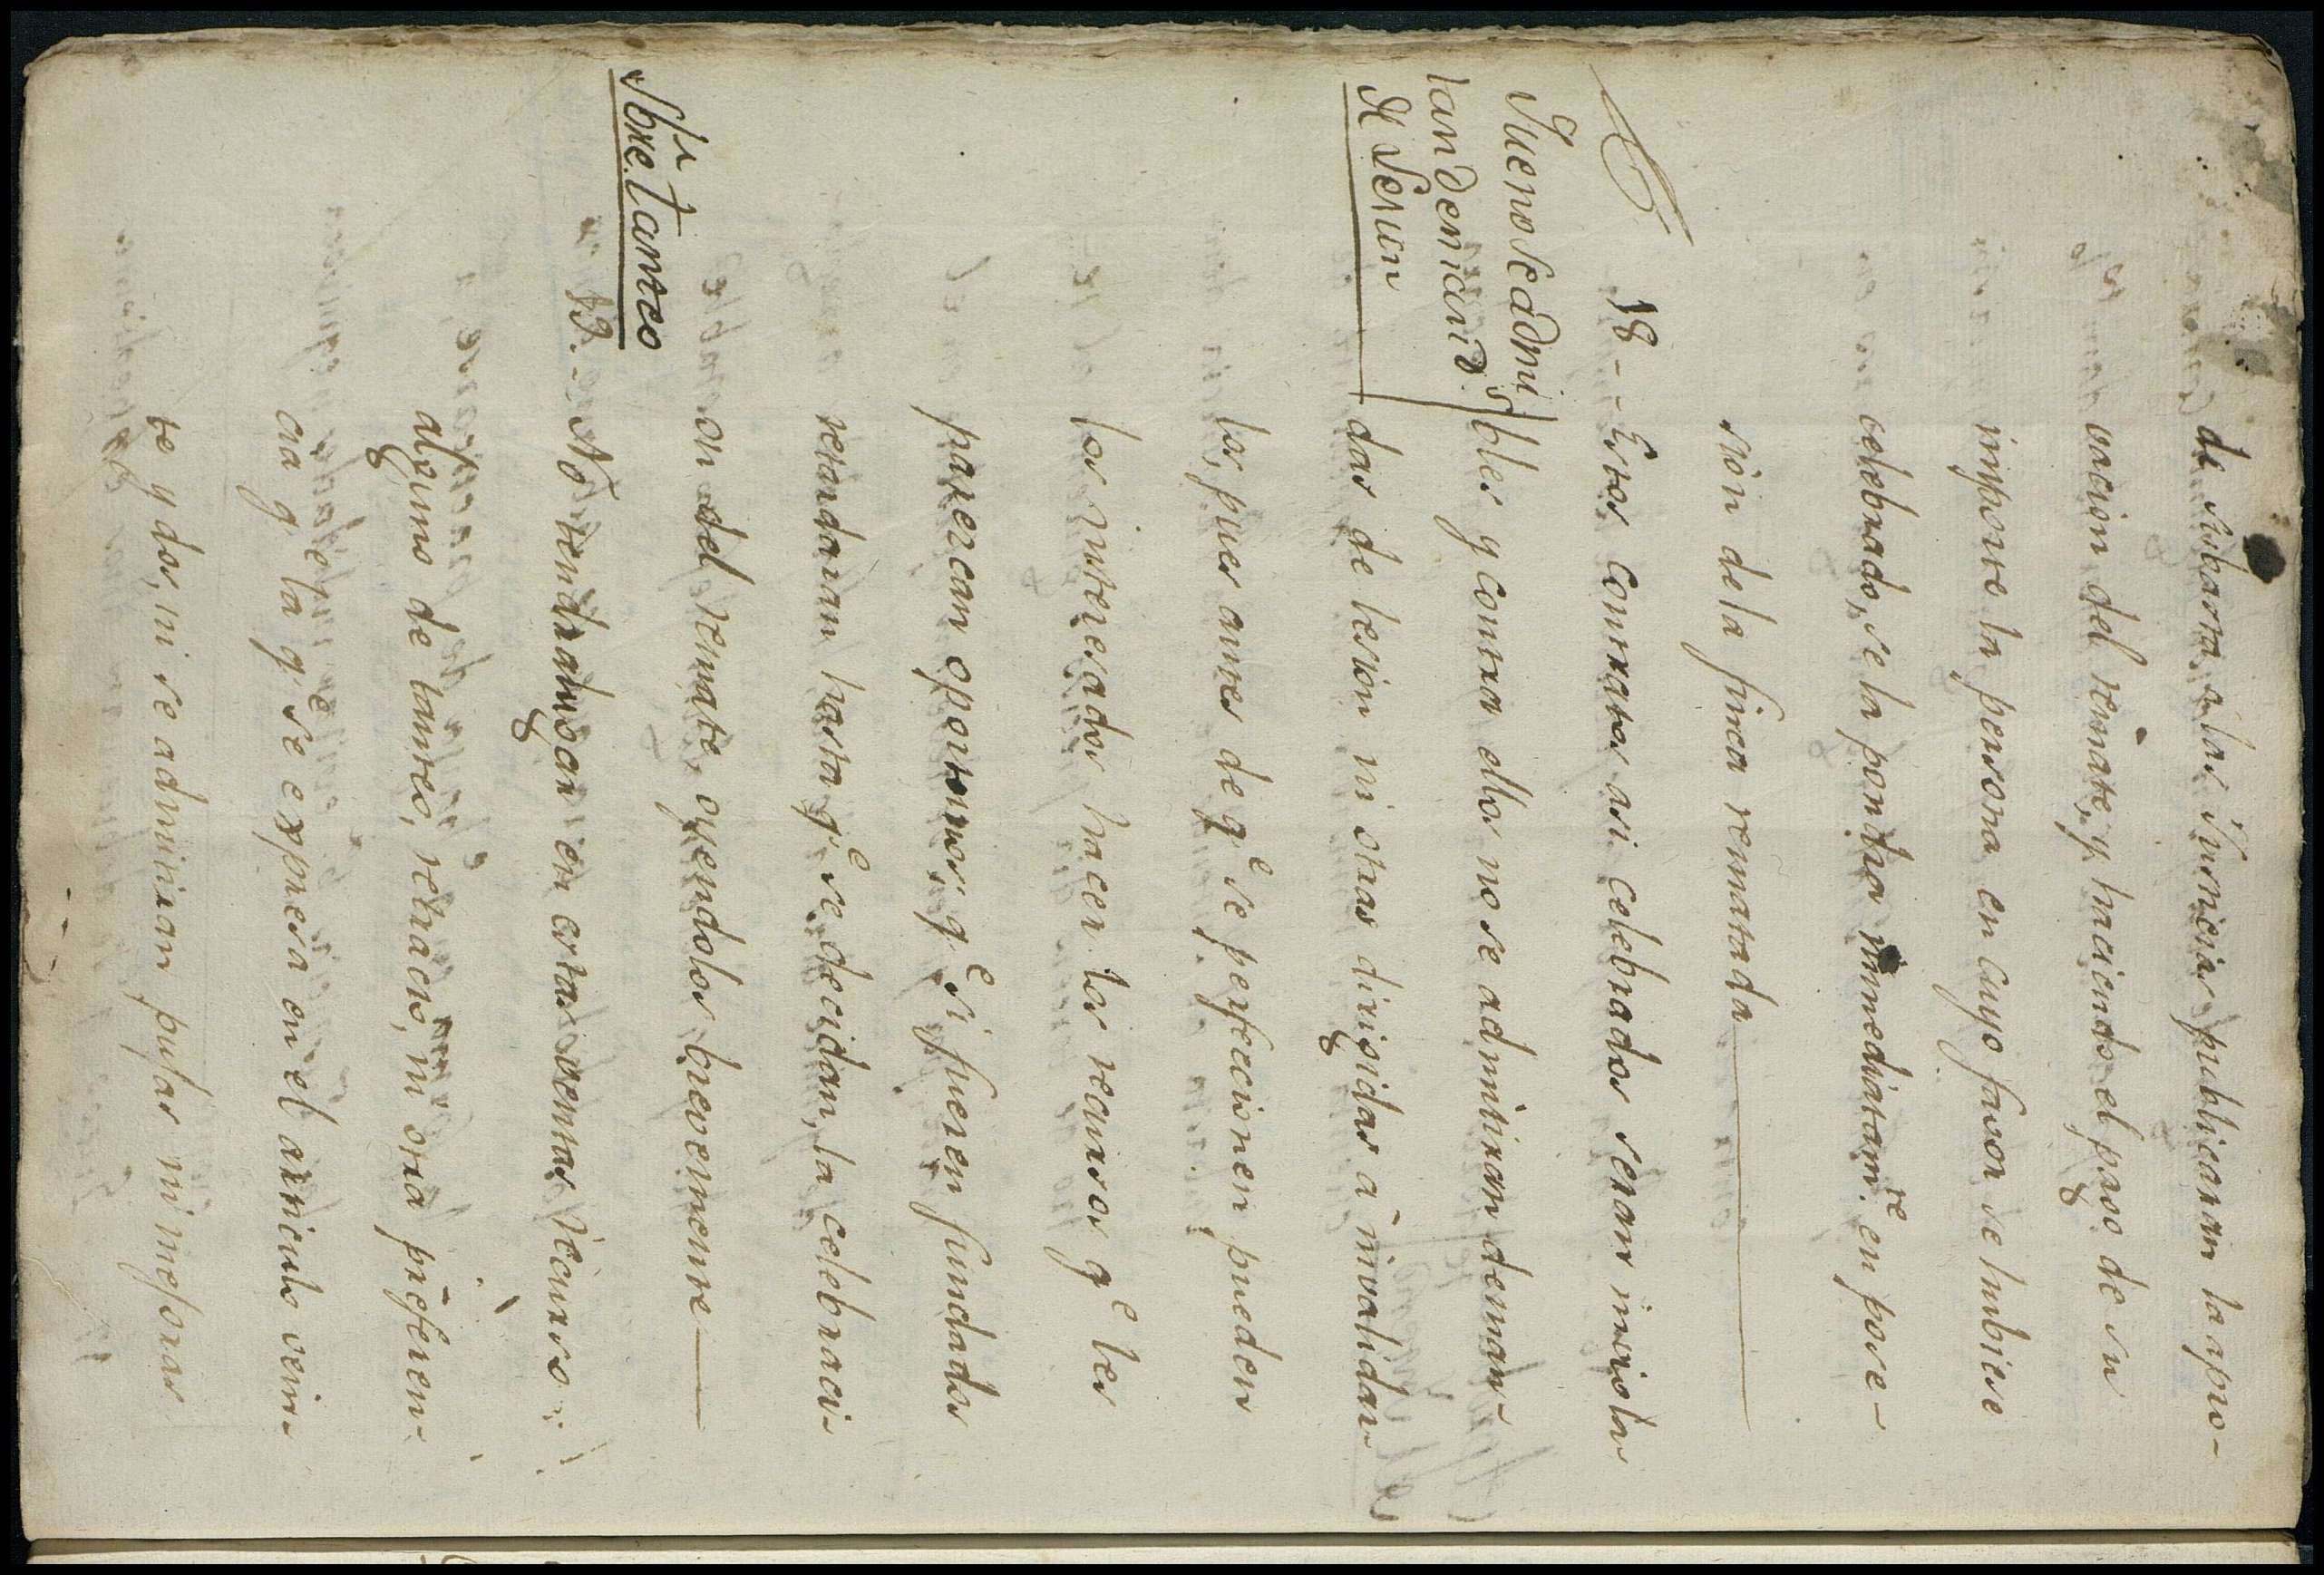 de subasta, o las Yntencias publicaran la apro-
vacion del remate, y haciendo el pago de su
importe la persona en cuyo favor se hubiese
celebrado, se la pondra inmediatam.te en pose-
sión de la finca rematada
Que no se admi
tan demand.s
de Lesion
18 -- Estos contratos asi celebrados seran inviola
bles y contra ellos no se admitiran deman-
das de lesion ni otras dirigidas á invalidar
los, pues antes de q.e se perfeccionen pueden
los interesados hacer los recursos q.e les
parezcan oportunos; q.e si fueren fundados
retardaran hasta q.e se decidan, la celebraci-
on del remate, oyendolos brevemente
Sbre. Tanteo
19 -- No tendra lugar en estas ventas recurso
alguno de tanteo, retracto, ni otra preferen-
cia q.e la q.e se expresa en el articulo vein-
te y dos, ni se admitiran pujas ni mejoras